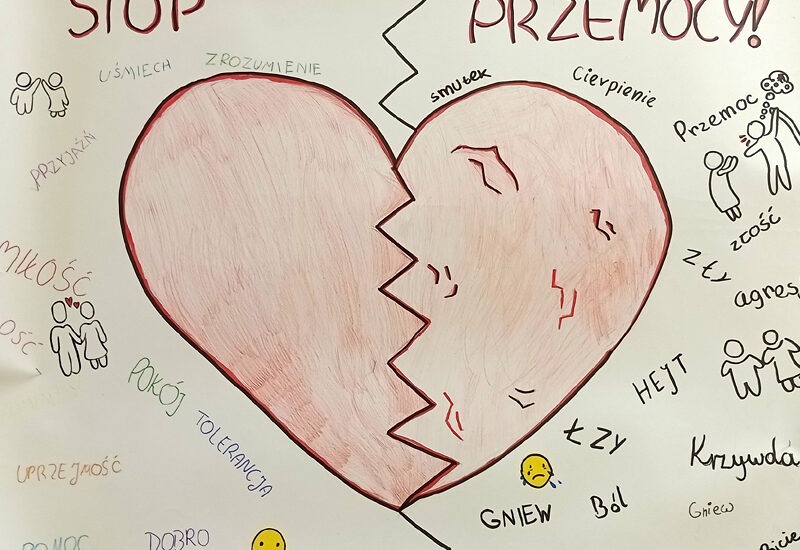 STOP
PRZEMOCY!
UŚMIECH
ZROZUMIENIE
PRZYJAŹŃ
MIŁOŚĆ
OŚĆ
POKÓJ
TOLERANCJA
UPRZEJMOŚĆ
POMOC
DOBRO
smutek
Cierpienie
Przemoc
złość
Zły
agres
HEJT
ŁZY
Krzywda
GNIEW
Ból
Gniew